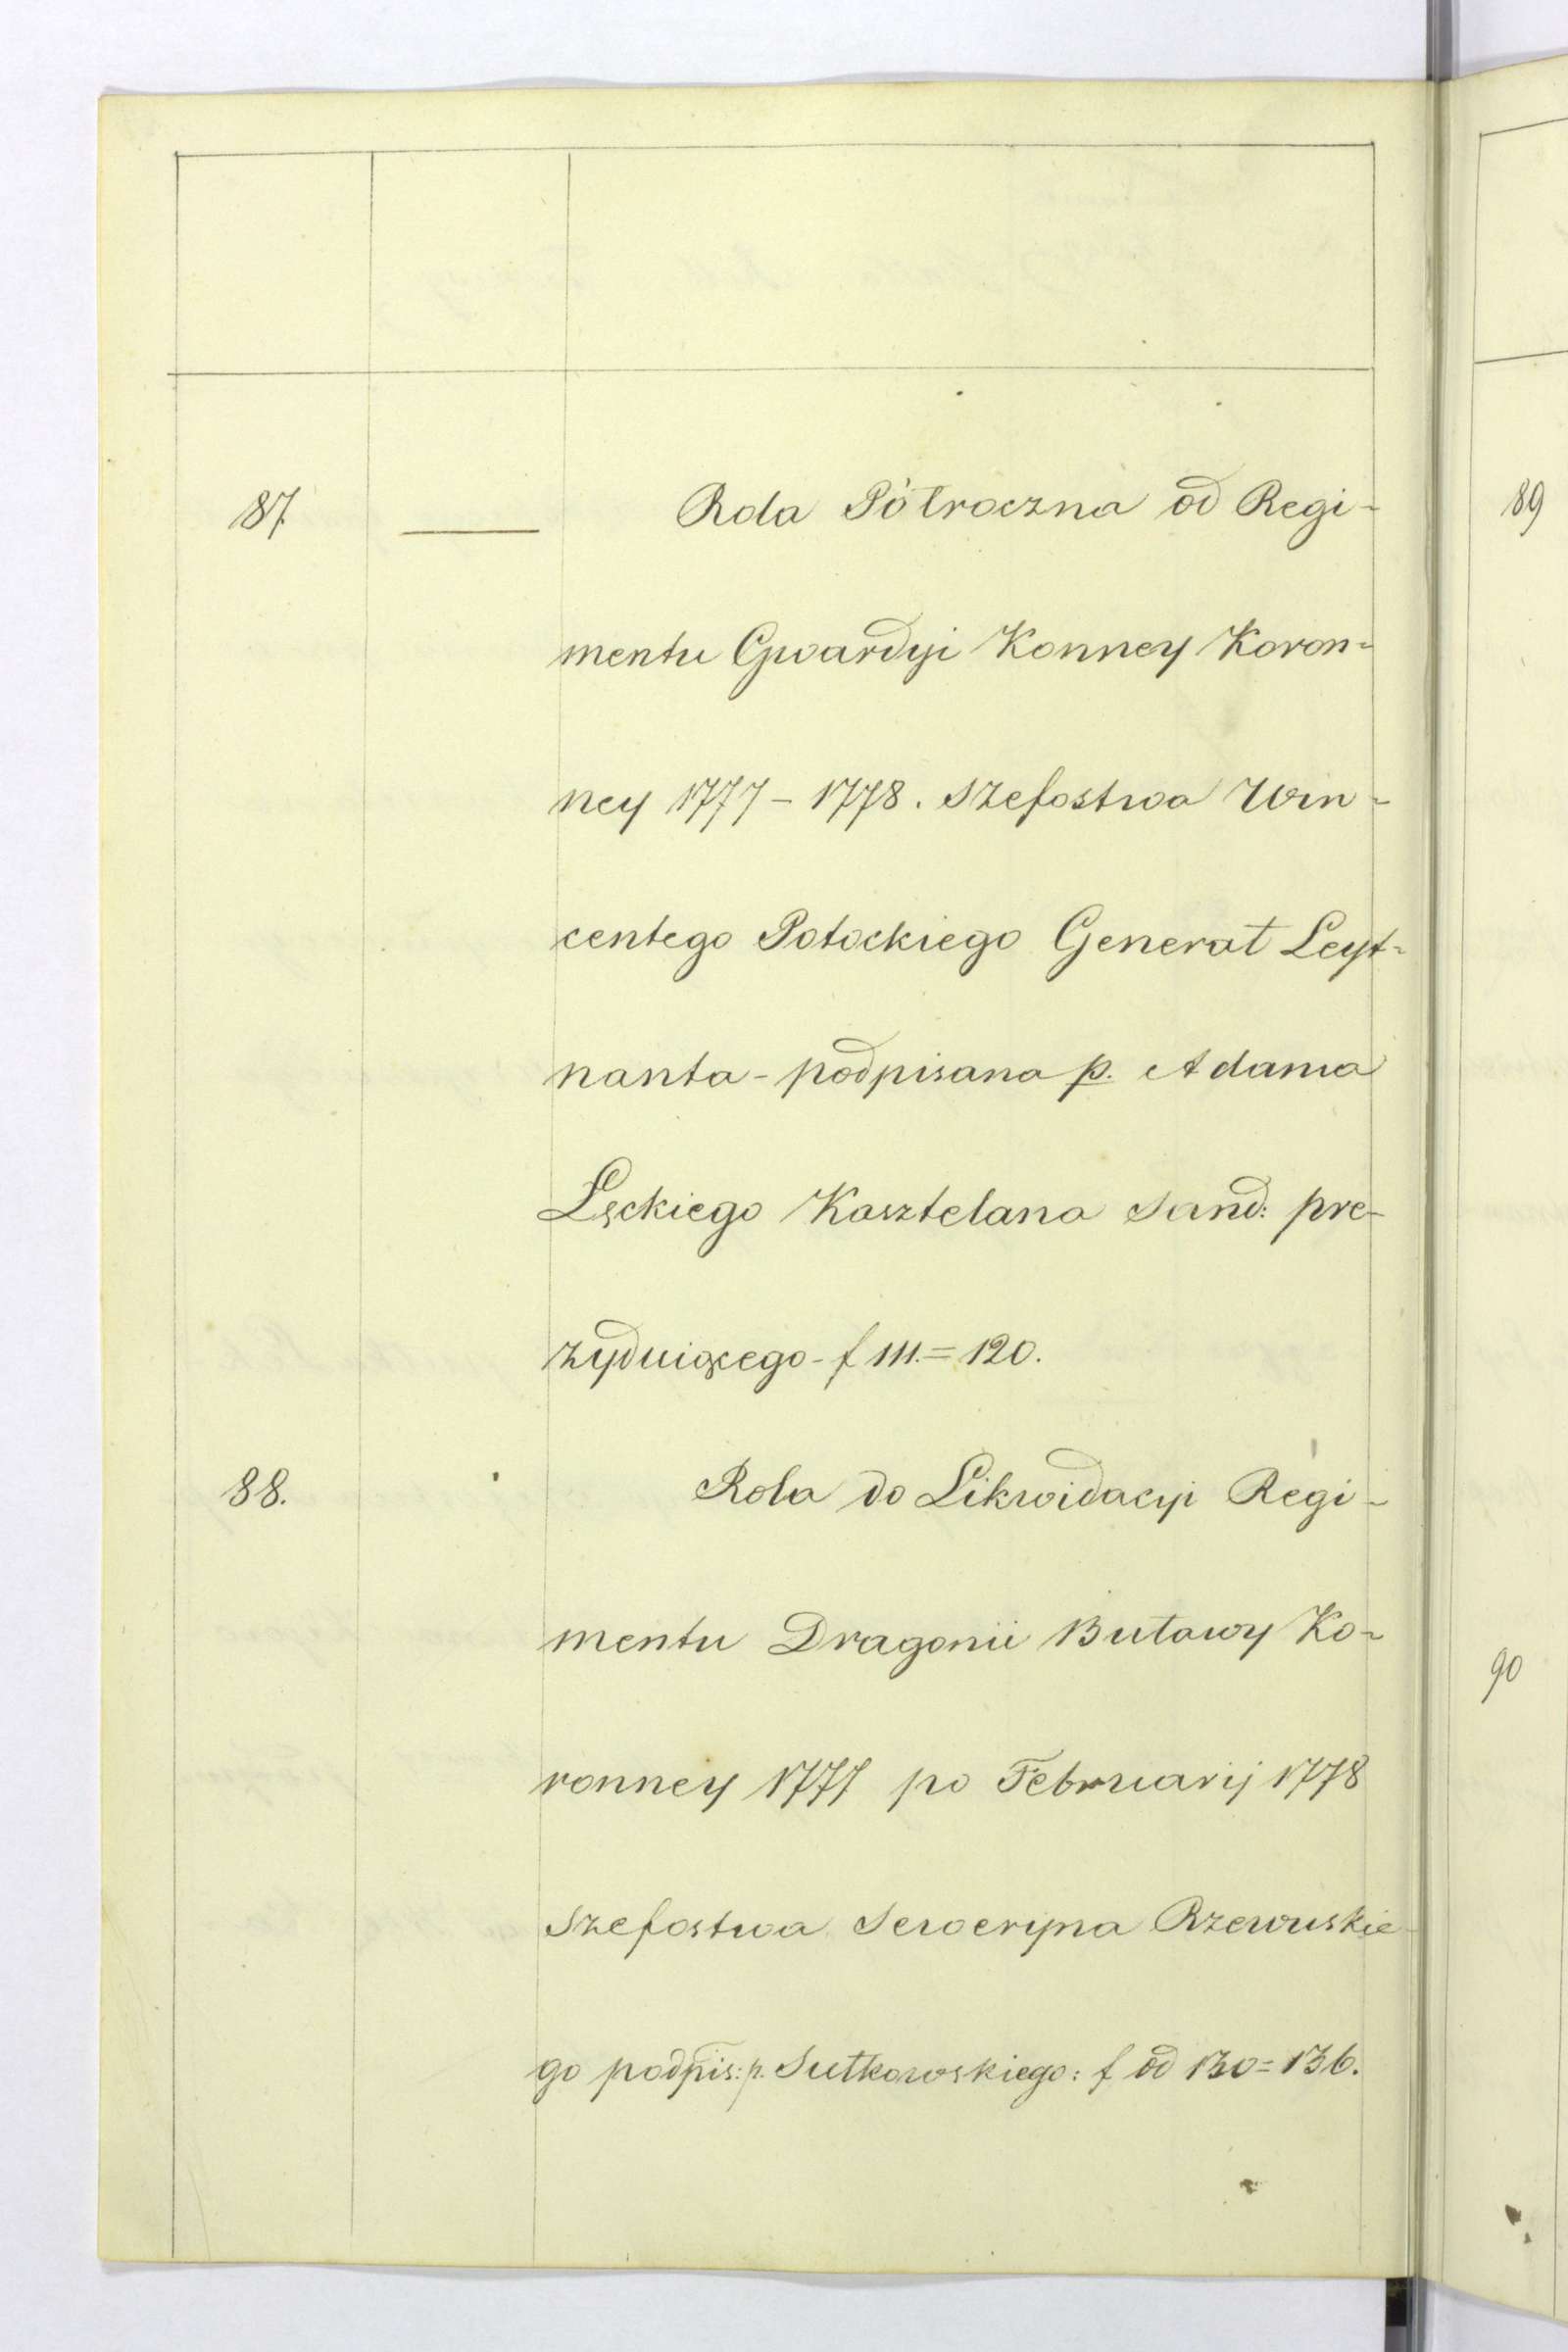 87. — Rola Półroczna od Regi-
mentu Gwardyi Konney Koron-
ney 1777 – 1778. Szefostwa Win-
centego Potockiego Generał Leyt-
nanta - podpisana p. Adama
Łęckiego Kasztelana Sand: pre-
zyduiącego - f 111. = 120.
88. Rola do Likwidacyi Regi-
mentu Dragonii Buławy Ko-
ronney 1777 po Februarij 1778
Szefostwa Seweryna Rzewuskie-
go podpis: p. Sułkowskiego: f od 130 = 136.
89
90